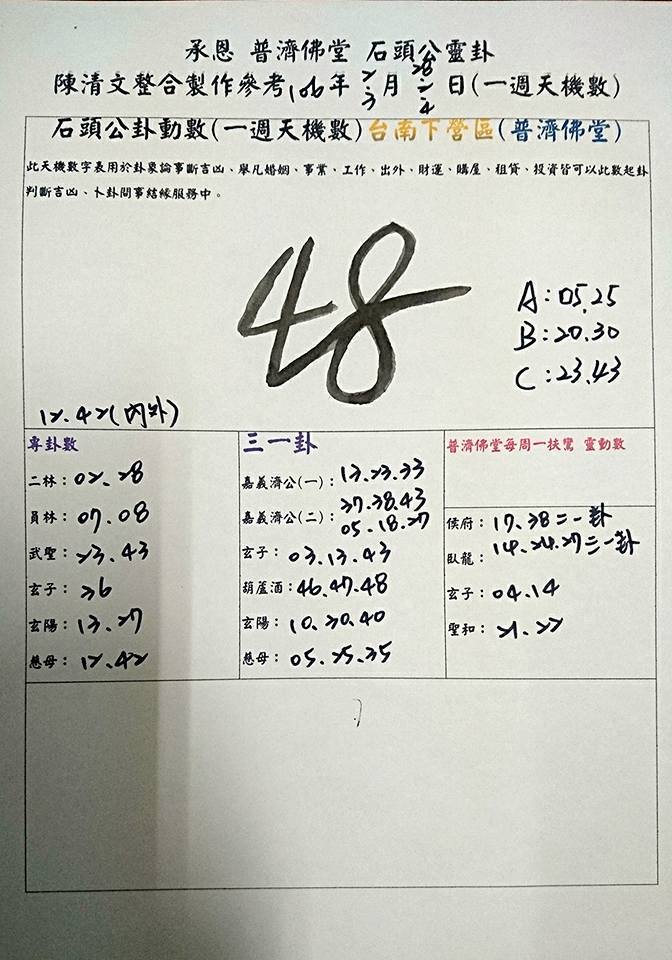 承恩 普濟佛堂 石頭公靈卦
陳清文整合製作參考106年2/3月28/1-4日(一週天機數)
石頭公卦動數(一週天機數)台南下營區(普濟佛堂)
此天機數字表用於卦象論事斷吉凶、舉凡婚姻、事業、工作、出外、財運、購屋、租貸、投資皆可以此數起卦
判斷吉凶、卜卦問事結緣服務中。
48
A:05.25
B:20.30
C:23.43
12.42(內外)
專卦數
二林:02.28
員林:07.08
武聖:23.43
玄子:36
玄陽:13.27
慈母:12.42
三一卦
嘉義濟公(一):13.23.33
嘉義濟公(二):37.38.43
05.18.27
玄子:03.13.43
葫蘆酒:46.47.48
玄陽:10.30.40
慈母:05.25.35
普濟佛堂每周一扶鸞 靈動數
侯府:17.38二一卦
臥龍:14.24.27三一卦
玄子:04.14
聖和:21.22